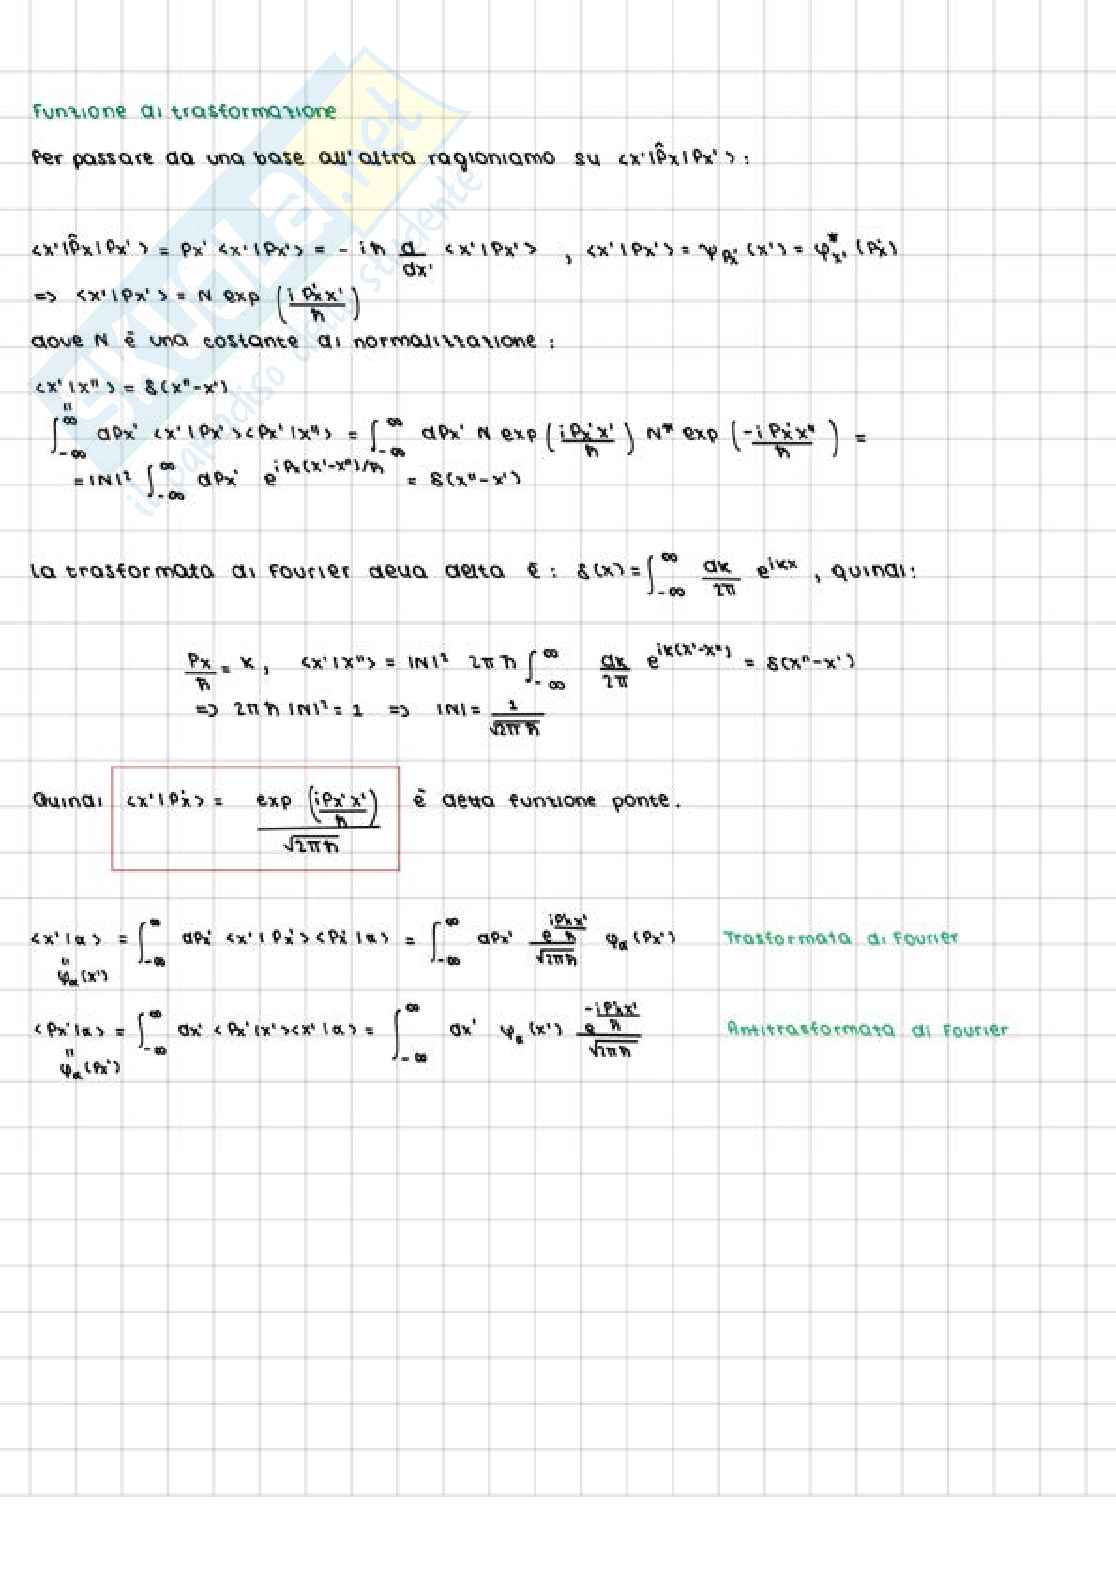 Funzione di trasformazione
Per passare da una base all'altra ragioniamo su <x'|p̂x|px'>:
<x'|p̂x|px'> = px' <x'|px'> = - iħ d/dx' <x'|px'> , <x'|px'> = ψpx'(x') = φ*x'(px')
=> <x'|px'> = N exp (i px' x'/ħ)
dove N è una costante di normalizzazione:
<x'|x"> = δ(x"-x')
"
∫-∞^∞ dpx' <x'|px'><px'|x"> = ∫-∞^∞ dpx' N exp (i px' x'/ħ) N* exp (-i px' x"/ħ) =
= |N|² ∫-∞^∞ dpx' e^(i px(x'-x")/ħ) = δ(x"-x')
La trasformata di Fourier della delta è: δ(x) = ∫-∞^∞ dk/2π e^(ikx) , quindi:
px/ħ = k, <x'|x"> = |N|² 2πħ ∫-∞^∞ dk/2π e^(ik(x'-x")) = δ(x"-x')
=> 2πħ |N|² = 1 => |N| = 1/√2πħ
Quindi <x'|px'> = exp (i px' x'/ħ)/√2πħ è detta funzione ponte.
<x'|α> = ∫-∞^∞ dpx' <x'|px'><px'|α> = ∫-∞^∞ dpx' e^(i px' x'/ħ)/√2πħ φα(px') Trasformata di Fourier
"
ψα(x')
<px'|α> = ∫-∞^∞ dx' <px'|x'><x'|α> = ∫-∞^∞ dx' ψα(x') e^(-i px' x'/ħ)/√2πħ Antitrasformata di Fourier
"
φα(px')
SKUOLA.net
il paradiso dello studente